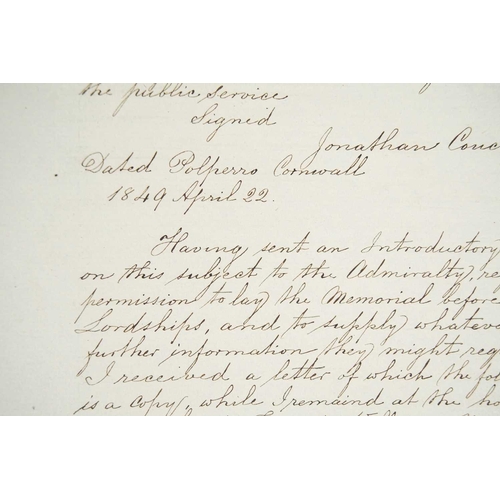 the public service
Signed
Jonathan Couc
Dated Polperro Cornwall
1849 April 22.
Having sent an Introductory
on this subject to the Admiralty, re
permission to lay the Memorial before
Lordships, and to supply whateve
further information they might req
I received a letter of which the fol
is a copy, while I remaind at the ho